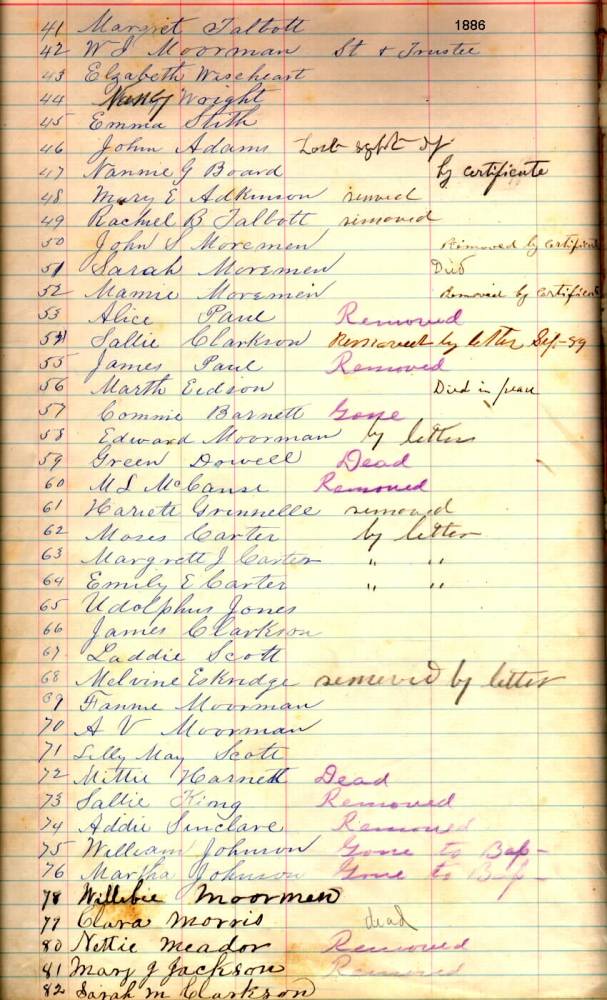 1886
41 Margret Talbott
42 W J Moorman St & Trustee
43 Elzabeth Wiseheart
44 Nancy Wright
45 Emma Stith
46 John Adams Lost sight of
47 Nannie G Board by certificate
48 Mary E Adkinson removed
49 Rachel B Talbott removed
50 John S Moremen Removed by certificate
51 Sarah Moremen Died
52 Mamie Moremen Removed by certificate
53 Alice Paul Removed
54 Sallie Clarkson Removed by letter Sep-89
55 James Paul Removed
56 Marth Eidson Died in peace
57 Commie Barnett Gone
58 Edward Moorman by letter
59 Green Dowell Dead
60 M L Removed
61 Hariett Grinnelle removed
62 Moses Carter by letter
63 Margrett J Carter " "
64 Emily E Carter " "
65 Udolphus Jones
66 James Clarkson
67 Laddie Scott
68 Melvine Eskridge removed by letter
69 Fannie Moorman
70 A V Moorman
71 Lilly May Scott
72 Mittie Harnett Dead
73 Sallie King Removed
74 Addie Sinclare Removed
75 William Johnson Gone to Bap-
76 Martha Johnson Gone to Bap-
78 Willibie Moormen
77 Clara Morris dead
80 Nettie Meador Removed
81 Mary J Jackson Removed
82 Sarah M Clarkson